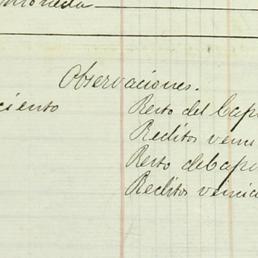 moneda
Observaciones.
ciento Resto del Cap
Reditos venci
Resto de Capi
Reditos vencid